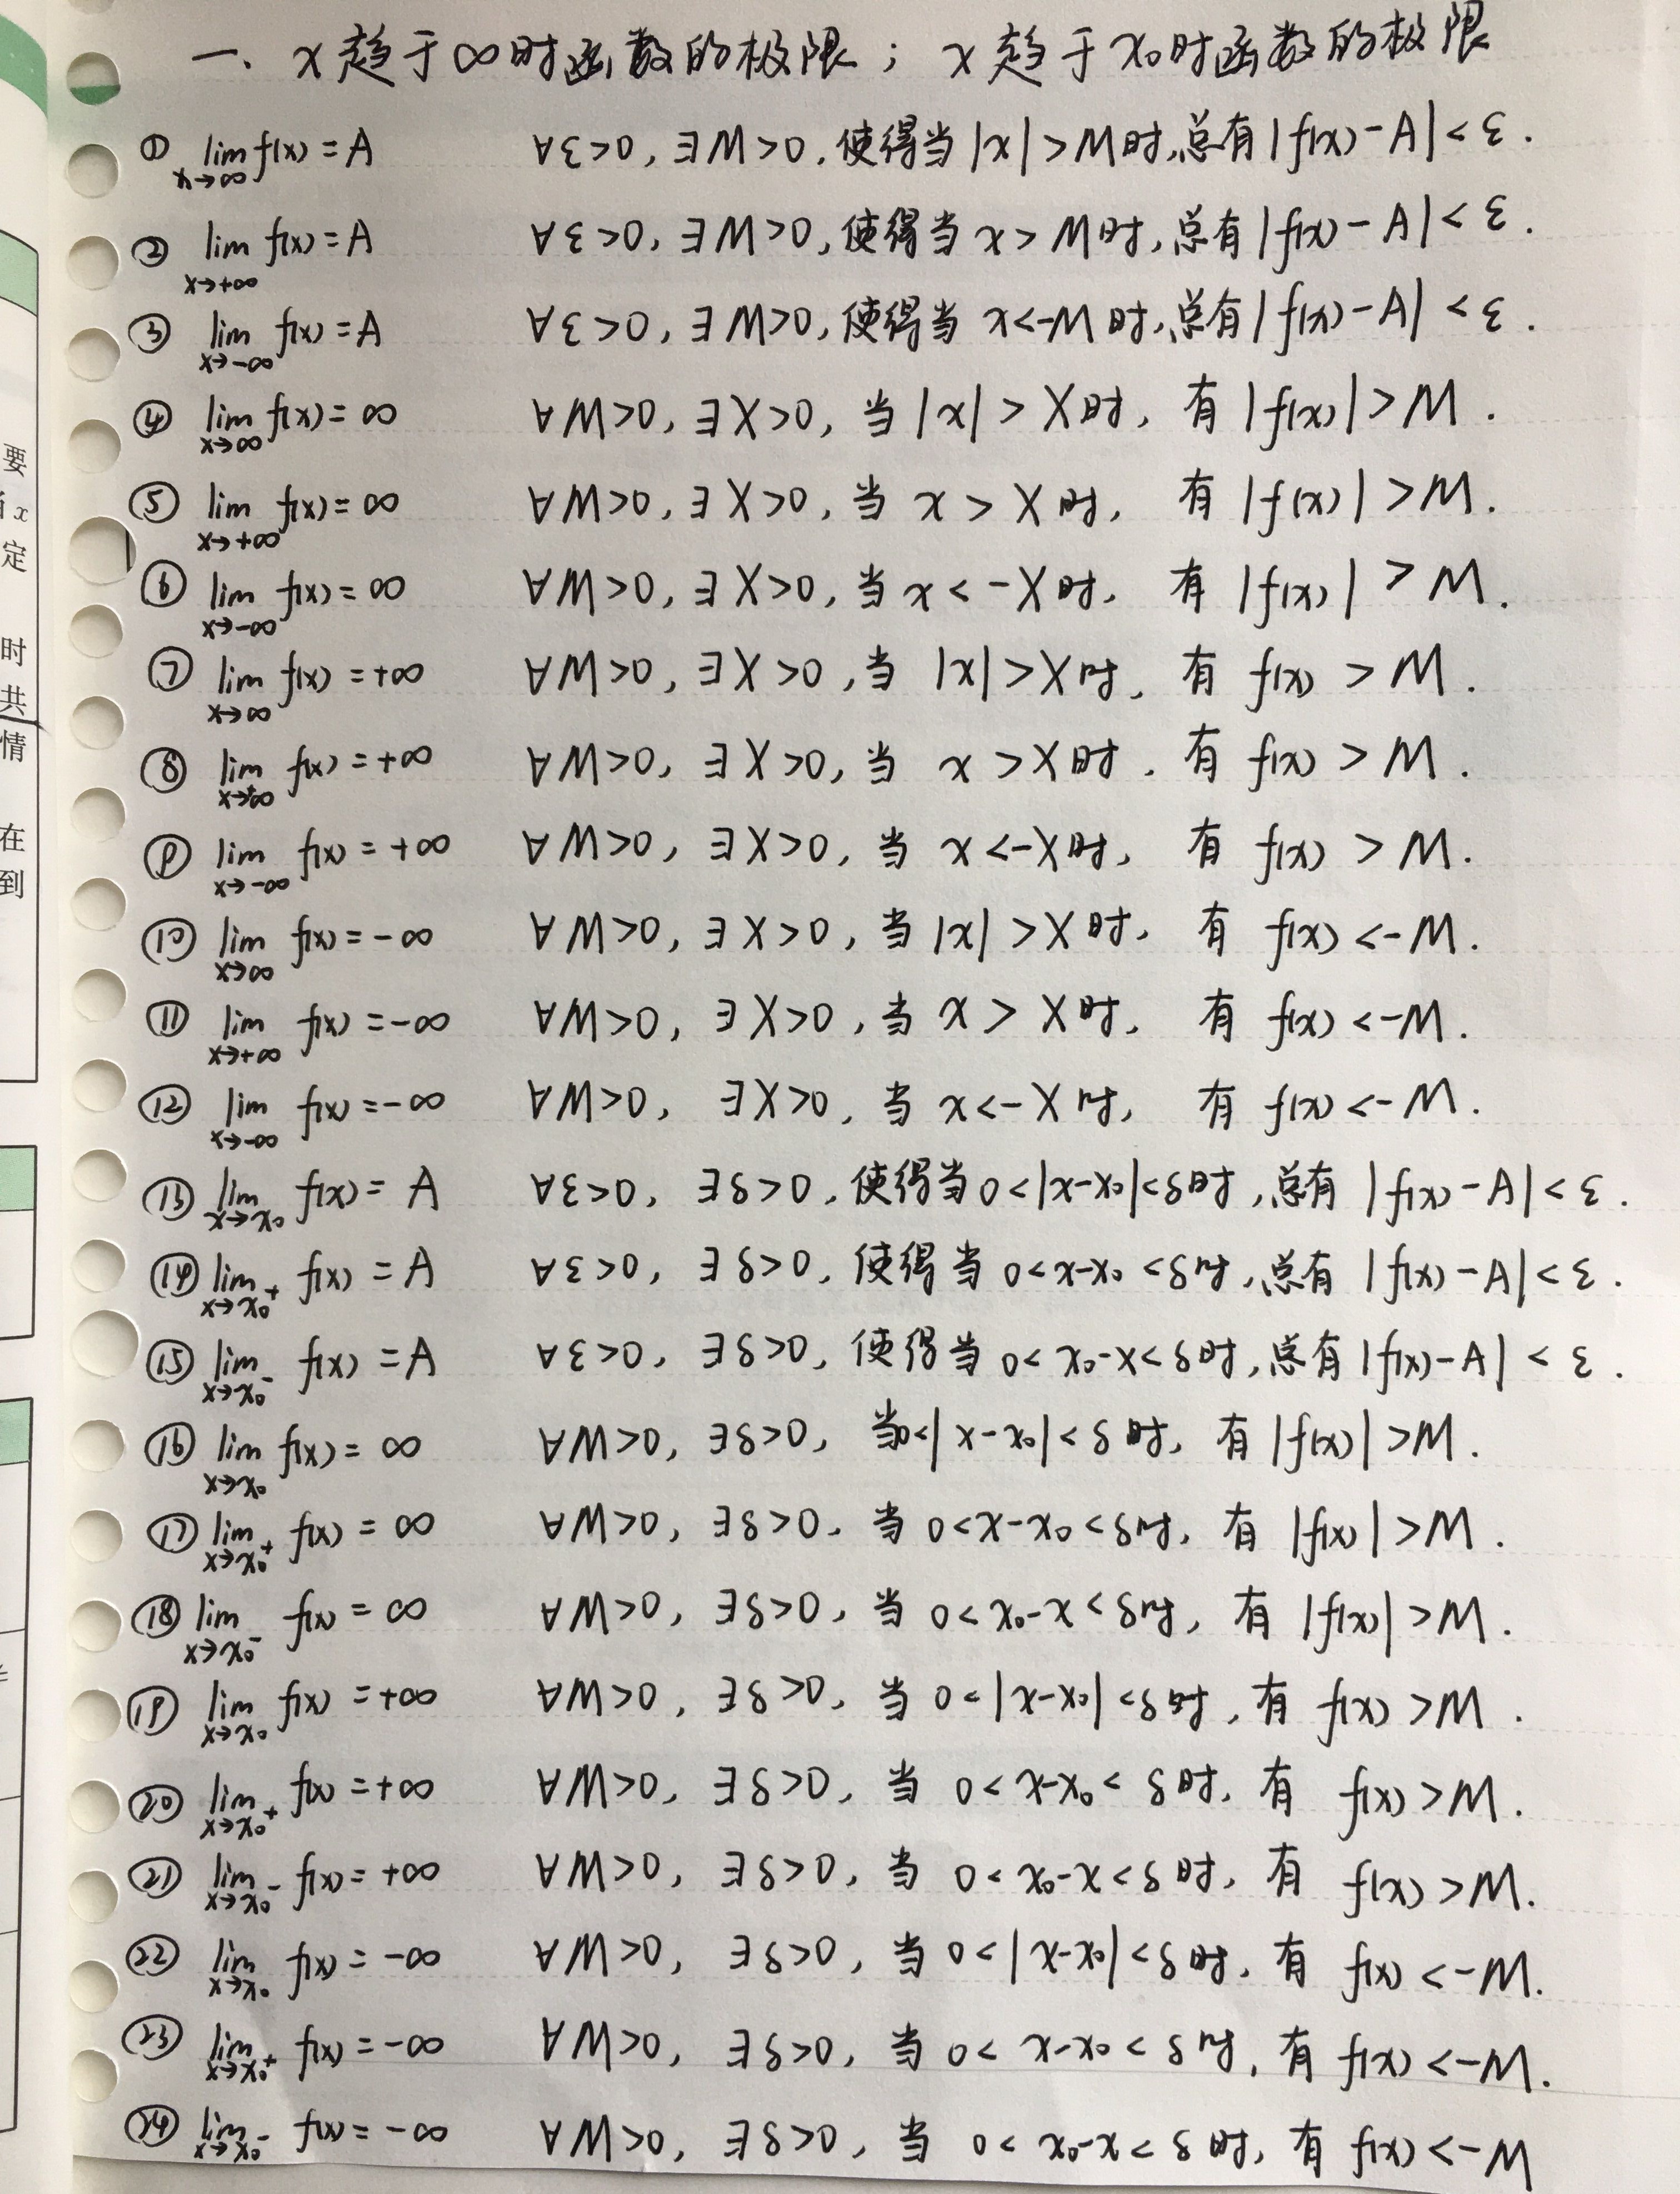 一、x趋于∞时函数的极限；x趋于x₀时函数的极限
① lim x→∞ f(x)=A ∀ε>0,∃M>0,使得当|x|>M时,总有|f(x)-A|<ε.
② lim x→+∞ f(x)=A ∀ε>0,∃M>0,使得当x>M时,总有|f(x)-A|<ε.
③ lim x→-∞ f(x)=A ∀ε>0,∃M>0,使得当x<-M时,总有|f(x)-A|<ε.
④ lim x→∞ f(x)=∞ ∀M>0,∃X>0,当|x|>X时,有|f(x)|>M.
⑤ lim x→+∞ f(x)=∞ ∀M>0,∃X>0,当x>X时,有|f(x)|>M.
⑥ lim x→-∞ f(x)=∞ ∀M>0,∃X>0,当x<-X时,有|f(x)|>M.
⑦ lim x→∞ f(x)=+∞ ∀M>0,∃X>0,当|x|>X时,有f(x)>M.
⑧ lim x→+∞ f(x)=+∞ ∀M>0,∃X>0,当x>X时,有f(x)>M.
⑨ lim x→-∞ f(x)=+∞ ∀M>0,∃X>0,当x<-X时,有f(x)>M.
⑩ lim x→∞ f(x)=-∞ ∀M>0,∃X>0,当|x|>X时,有f(x)<-M.
⑪ lim x→+∞ f(x)=-∞ ∀M>0,∃X>0,当x>X时,有f(x)<-M.
⑫ lim x→-∞ f(x)=-∞ ∀M>0,∃X>0,当x<-X时,有f(x)<-M.
⑬ lim x→x₀ f(x)=A ∀ε>0,∃δ>0,使得当0<|x-x₀|<δ时,总有|f(x)-A|<ε.
⑭ lim x→x₀⁺ f(x)=A ∀ε>0,∃δ>0,使得当0<x-x₀<δ时,总有|f(x)-A|<ε.
⑮ lim x→x₀⁻ f(x)=A ∀ε>0,∃δ>0,使得当0<x₀-x<δ时,总有|f(x)-A|<ε.
⑯ lim x→x₀ f(x)=∞ ∀M>0,∃δ>0,当0<|x-x₀|<δ时,有|f(x)|>M.
⑰ lim x→x₀⁺ f(x)=∞ ∀M>0,∃δ>0,当0<x-x₀<δ时,有|f(x)|>M.
⑱ lim x→x₀⁻ f(x)=∞ ∀M>0,∃δ>0,当0<x₀-x<δ时,有|f(x)|>M.
⑲ lim x→x₀ f(x)=+∞ ∀M>0,∃δ>0,当0<|x-x₀|<δ时,有f(x)>M.
⑳ lim x→x₀⁺ f(x)=+∞ ∀M>0,∃δ>0,当0<x-x₀<δ时,有f(x)>M.
㉑ lim x→x₀⁻ f(x)=+∞ ∀M>0,∃δ>0,当0<x₀-x<δ时,有f(x)>M.
㉒ lim x→x₀ f(x)=-∞ ∀M>0,∃δ>0,当0<|x-x₀|<δ时,有f(x)<-M.
㉓ lim x→x₀⁺ f(x)=-∞ ∀M>0,∃δ>0,当0<x-x₀<δ时,有f(x)<-M.
㉔ lim x→x₀⁻ f(x)=-∞ ∀M>0,∃δ>0,当0<x₀-x<δ时,有f(x)<-M
要
x
定
时
共
情
在
到